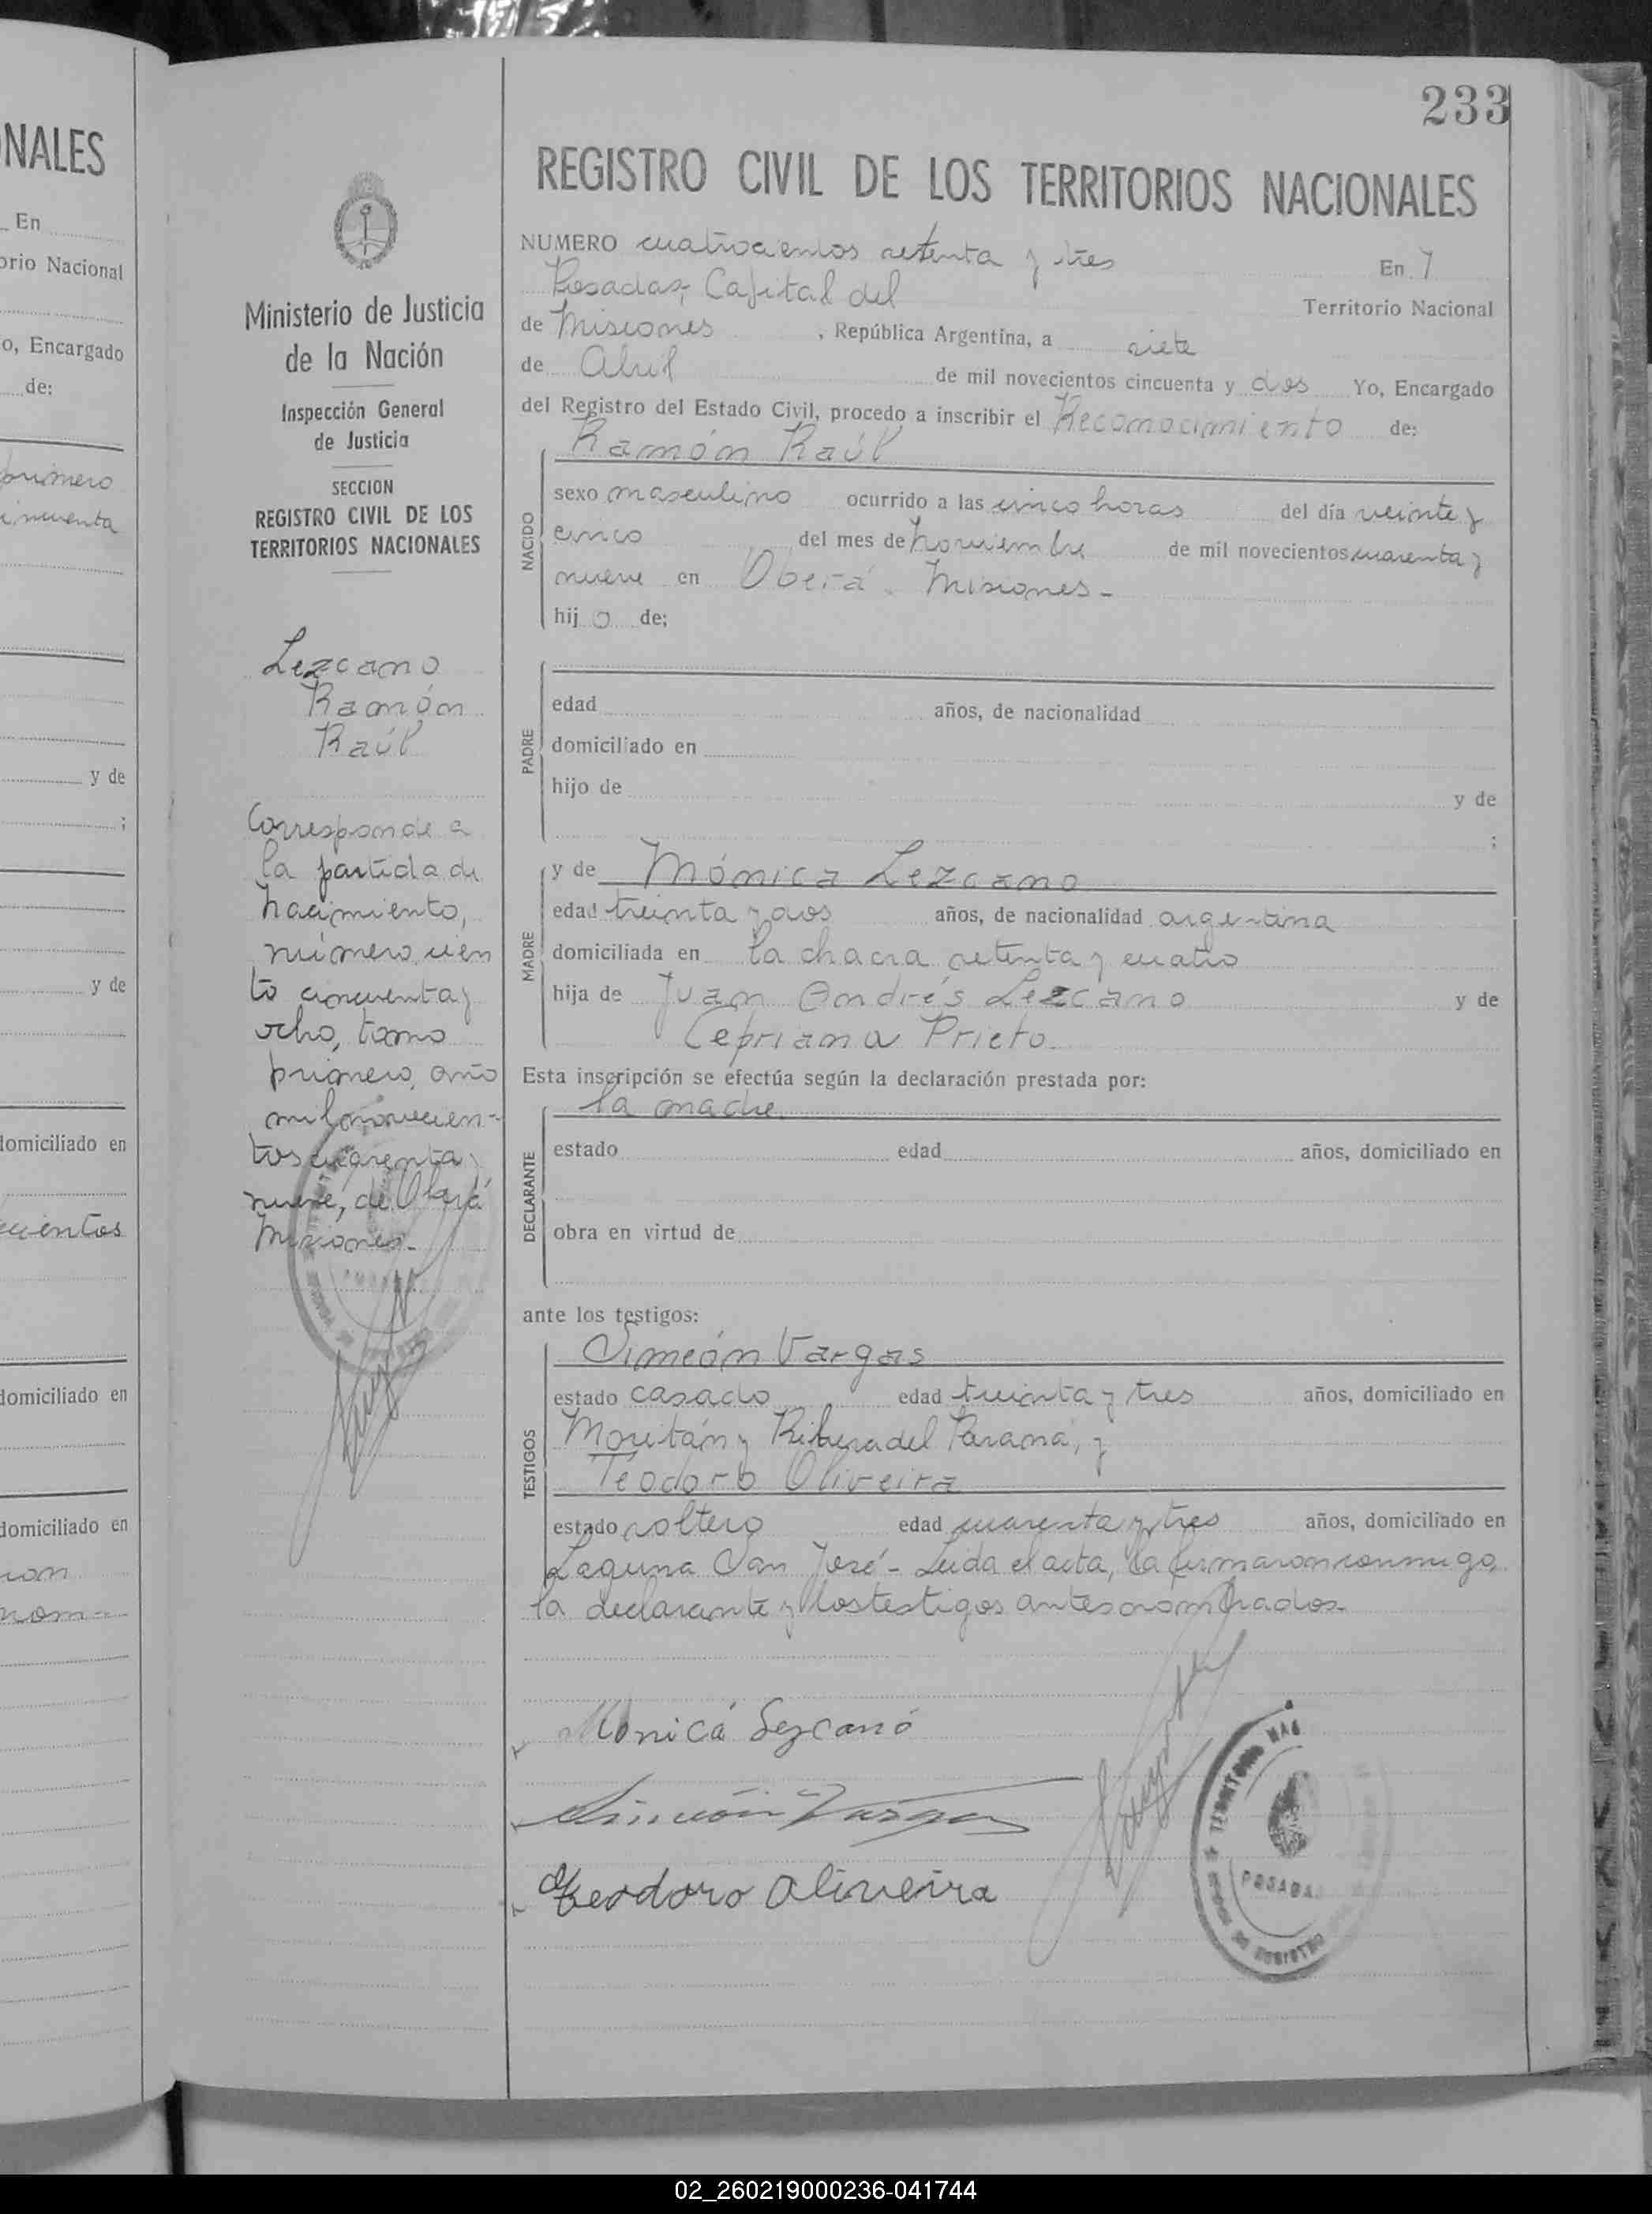 NALES
En
orio Nacional
o, Encargado
de:
primero
incuenta
y de
;
y de
domiciliado en
cientos
domiciliado en
domiciliado en
nom-
Ministerio de Justicia
de la Nación
Inspección General
de Justicia
SECCION
REGISTRO CIVIL DE LOS
TERRITORIOS NACIONALES
Lezcano
Ramón
Raúl
Corresponde a
la partida de
Nacimiento,
número cien
to cincuenta y
ocho, tomo
primero, año
mil novecien-
tos cuarenta y
nueve, de Oberá
Misiones.-
233
REGISTRO CIVIL DE LOS TERRITORIOS NACIONALES
NUMERO cuatrocientos setenta y tres En
Posadas, Capital del Territorio Nacional
de Misiones, República Argentina, a siete
de Abril de mil novecientos cincuenta y dos Yo, Encargado
del Registro del Estado Civil, procedo a inscribir el Reconocimiento de:
Ramón Raúl
NACIDO
sexo masculino ocurrido a las cinco horas del día veinte y
cinco del mes de Noviembre de mil novecientos cuarenta y
nueve en Oberá. Misiones-
hijo de;
PADRE
edad años, de nacionalidad
domiciliado en
hijo de y de
;
MADRE
y de Mónica Lezcano
edad treinta y dos años, de nacionalidad argentina
domiciliada en la chacra setenta y cuatro
hija de Juan Andrés Lezcano y de
Cepriana Prieto.
Esta inscripción se efectúa según la declaración prestada por:
la madre
DECLARANTE
estado edad años, domiciliado en
obra en virtud de
ante los testigos:
TESTIGOS
Simeón Vargas
estado casado edad treinta y tres años, domiciliado en
Moritán y Ribera del Paraná, y
Teodoro Oliveira
estado soltero edad cuarenta y tres años, domiciliado en
Laguna San José- Leida el acta, la firmaron conmigo,
la declarante y los testigos antes nombrados-
Monicá Lezcanó
Simeón Vargas
Teodoro Oliveira
TERRITORIO NAC
POSADAS
02_260219000236-041744